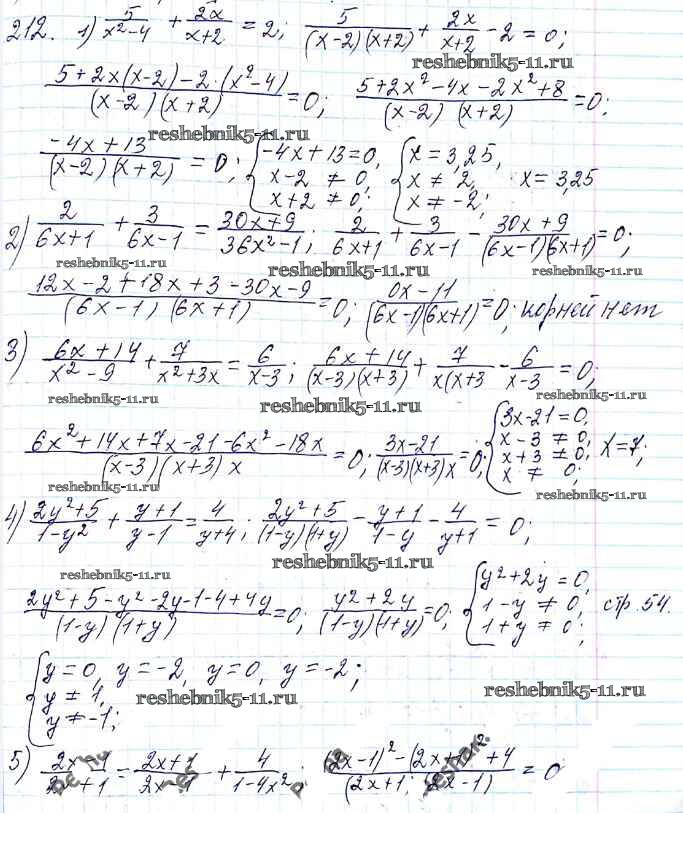 212. 1) 5/(x²-4) + 2x/(x+2) = 2; 5/((x-2)(x+2)) + 2x/(x+2) - 2 = 0;
reshebnik5-11.ru
(5+2x(x-2)-2·(x²-4))/((x-2)(x+2)) = 0; (5+2x²-4x-2x²+8)/((x-2)(x+2)) = 0;
reshebnik5-11.ru
(-4x+13)/((x-2)(x+2)) = 0; { -4x+13=0, x-2≠0, x+2≠0; { x=3,25, x≠2, x≠-2; x=3,25
2) 2/(6x+1) + 3/(6x-1) = (30x+9)/(36x²-1); 2/(6x+1) + 3/(6x-1) - (30x+9)/((6x-1)(6x+1)) = 0;
reshebnik5-11.ru reshebnik5-11.ru reshebnik5-11.ru
(12x-2+18x+3-30x-9)/((6x-1)(6x+1)) = 0; (0x-11)/((6x-1)(6x+1)) = 0; корней нет
3) (6x+14)/(x²-9) + 7/(x²+3x) = 6/(x-3); (6x+14)/((x-3)(x+3)) + 7/(x(x+3 - 6/(x-3) = 0;
reshebnik5-11.ru reshebnik5-11.ru reshebnik5-11.ru
(6x²+14x+7x-21-6x²-18x)/((x-3)(x+3)x) = 0; (3x-21)/((x-3)(x+3)x) = 0; { 3x-21=0, x-3≠0, x+3≠0, x≠0; x=7;
reshebnik5-11.ru
4) (2y²+5)/(1-y²) + (y+1)/(y-1) = 4/(y+4); (2y²+5)/((1-y)(1+y)) - (y+1)/(1-y) - 4/(y+1) = 0;
reshebnik5-11.ru reshebnik5-11.ru
(2y²+5-y²-2y-1-4+4y)/((1-y)(1+y)) = 0; (y²+2y)/((1-y)(1+y)) = 0; { y²+2y=0, 1-y≠0, 1+y≠0; стр. 54.
{ y=0, y=-2, y≠1, y≠-1; y=0, y=-2;
reshebnik5-11.ru reshebnik5-11.ru
5) = (2x+1) + 4/(1-4x²); +4 = 0